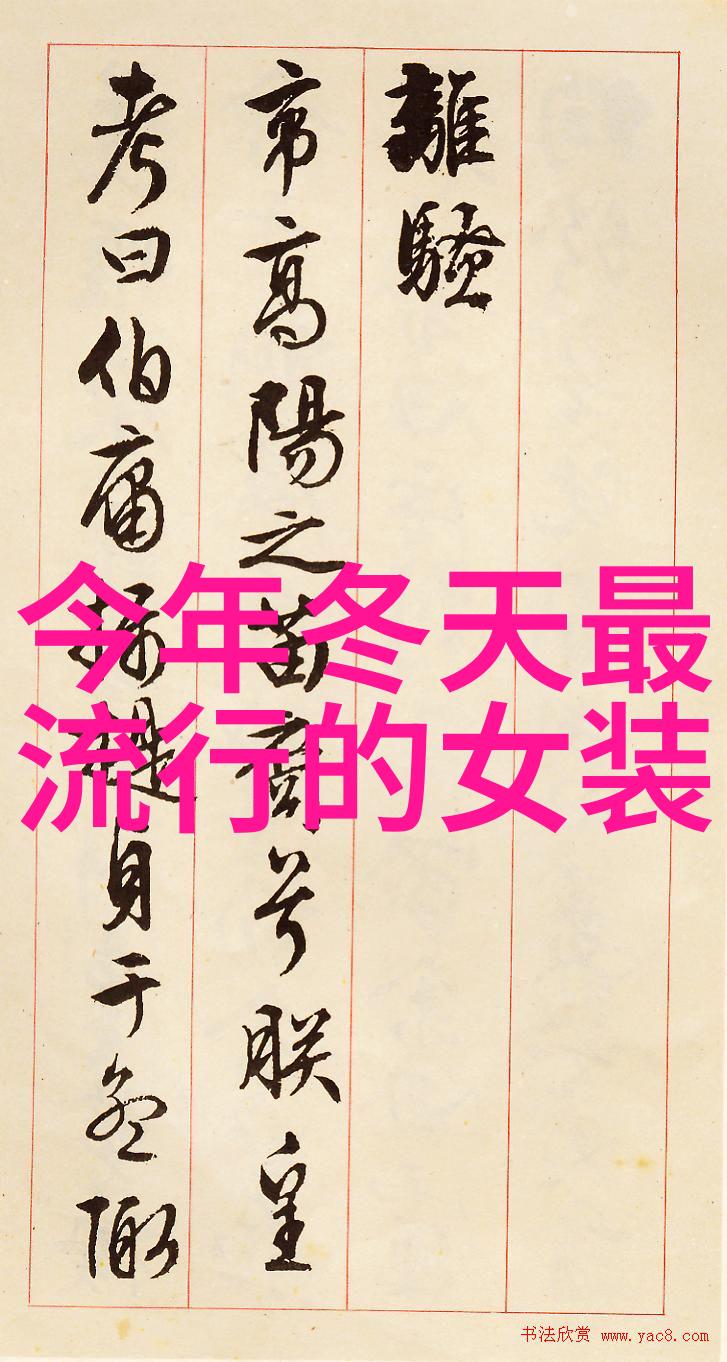 離騷
帝高陽之苗裔兮朕皇
考曰伯庸攝提貞于孟陬
今年冬天最
流行的女装
书法欣赏 www.yac8.com